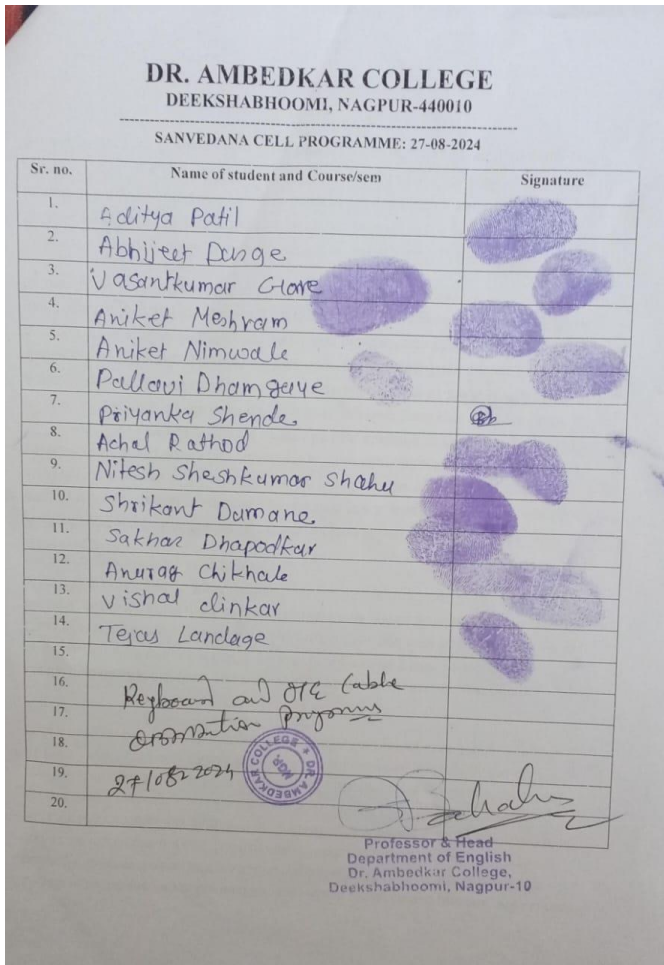 DR. AMBEDKAR COLLEGE
DEEKSHABHOOMI, NAGPUR-440010
SANVEDANA CELL PROGRAMME: 27-08-2024
Sr. no. Name of student and Course/sem Signature
1. Aditya Patil
2. Abhijeet Dange
3. Vasantkumar
4. Aniket Meshram
5. Aniket Nimwale
6. Pallavi Dhamgaye
7. Priyanka Shende
8. Achal Rathod
9. Nitesh Sheshkumar Shahu
10. Shrikant Damane
11. Sakhar Dhapodkar
12. Anurag Chikhale
13. Vishal dinkar
14. Tejas Landage
15.
16. Keyboard and OTG Cable
17.
18.
19. 27/08/2024
20.
DR. AMBEDKAR COLLEGE
Professor & Head
Department of English
Dr. Ambedkar College,
Deekshabhoomi, Nagpur-10